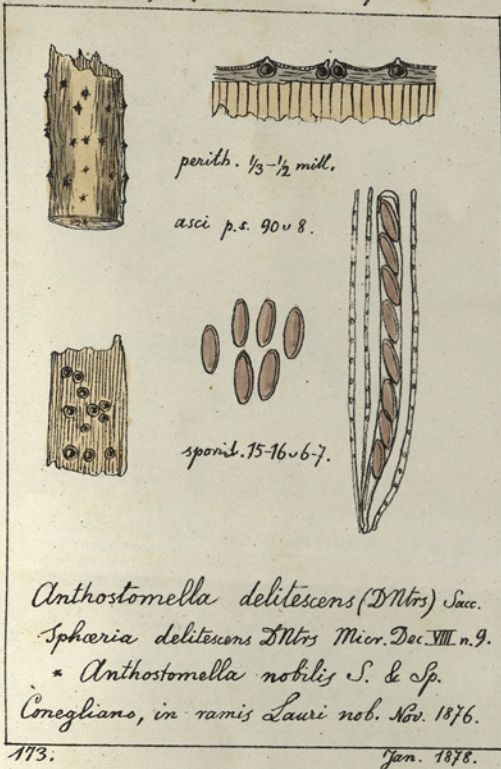 perith. 1/3-1/2 mill.
asci p.s. 90 ν 8.
sporid. 15-16 ν 6-7.
Anthostomella delitescens (DNtrs) Sacc.
Sphæria delitescens DNtrs Micr. Dec. VIII n. 9.
* Anthostomella nobilis S. & Sp.
Conegliano, in ramis Lauri nob. Nov. 1876.
173.
Jan. 1878.